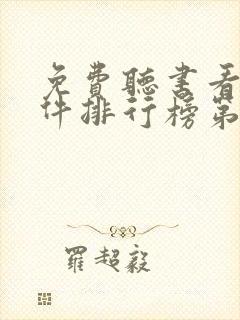 免費聽書看
件排行榜第
羅超毅